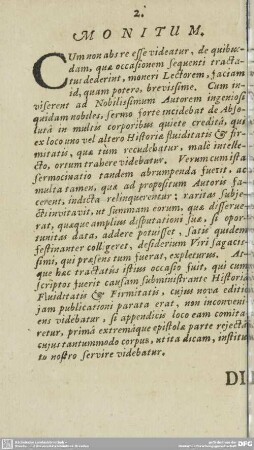 2.
MONITUM.
CUm non abs re esse videatur, de quibus-
dam, quæ occasionem sequenti tracta-
tui dederint, moneri Lectorem, faciam
id, quam potero, brevissime. Cum in-
viserent ad Nobilissimum Autorem ingeniosi
quidam nobiles, sermo forte incidebat de Abso-
luta in multis corporibus quiete credita, qui
ex loco uno vel altero Historiæ fluiditatis & fir-
mitatis, quæ tum recudebatur, male intelle-
cto, ortum trahere videbatur. Verum cum ista
sermocinatio tandem abrumpenda fuerit, ac
multa tamen, quæ ad propositum Autoris fa-
cerent, indicta relinquerentur; raritas subje-
cti invitavit, ut summam eorum, quæ disserue-
rat, quæque amplius disputationi suæ, si opor-
tunitas data, addere potuisset, satis quidem
festinanter colligeret, desiderium Viri sagacis-
simi, qui præsens tum fuerat, expleturus. At-
que hæc tractatus istius occasio fuit, qui cum
scriptos fuerit causam subministrante Historia
Fluiditatis & Firmitatis, cujus nova editio
jam publicationi parata erat, non inconveni-
ens videbatur, si appendicis loco eam comita-
retur, prima extremaque epistolæ parte rejecta,
cujus tantummodo corpus, ut ita dicam, institu-
to nostro servire videbatur.
DI